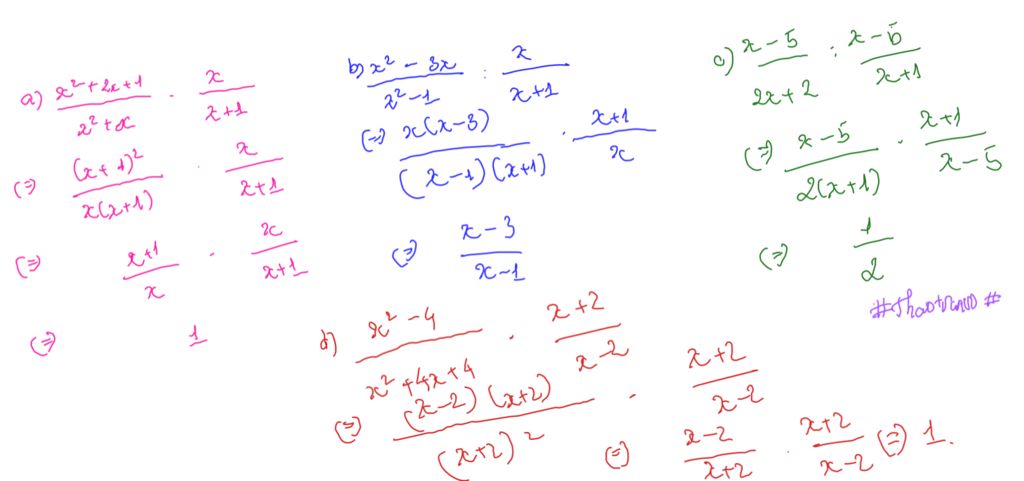 a) \frac{x^2+2x+1}{x^2+x} \cdot \frac{x}{x+1}
(=) \frac{(x+1)^2}{x(x+1)} \cdot \frac{x}{x+1}
(=) \frac{x+1}{x} \cdot \frac{x}{x+1}
(=) 1
b) \frac{x^2-3x}{x^2-1} : \frac{x}{x+1}
(=) \frac{x(x-3)}{(x-1)(x+1)} \cdot \frac{x+1}{x}
(=) \frac{x-3}{x-1}
c) \frac{x-5}{2x+2} : \frac{x-5}{x+1}
(=) \frac{x-5}{2(x+1)} \cdot \frac{x+1}{x-5}
(=) \frac{1}{2}
d) \frac{x^2-4}{x^2+4x+4} \cdot \frac{x+2}{x-2}
(=) \frac{(x-2)(x+2)}{(x+2)^2} \cdot \frac{x+2}{x-2}
(=) \frac{x-2}{x+2} \cdot \frac{x+2}{x-2} (=) 1.